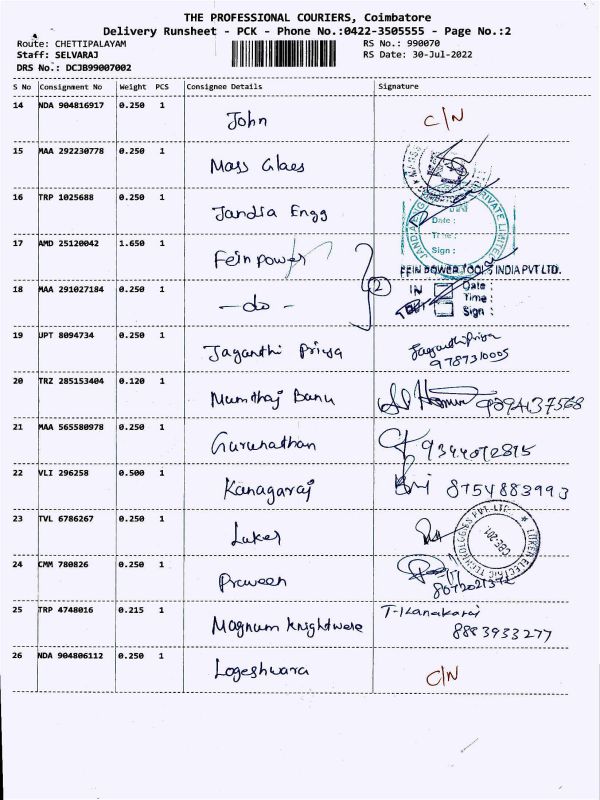 THE PROFESSIONAL COURIERS, Coimbatore
Delivery Runsheet - PCK - Phone No.:0422-3505555 - Page No.:2
Route: CHETTIPALAYAM RS No.: 990070
Staff: SELVARAJ RS Date: 30-Jul-2022
DRS No.: DCJB99007002
S No Consignment No Weight PCS Consignee Details Signature
14 NDA 904816917 0.250 1 John C/N
15 MAA 292230778 0.250 1 Mass Glaes
16 TRP 1025688 0.250 1 Jandia Engg
Date :
Time :
Sign :
17 AMD 25120042 1.650 1 Fein power
FEIN POWER TOOLS INDIA PVT LTD.
18 MAA 291027184 0.250 1 - do - 2
IN Date :
Time :
Sign :
19 UPT 8094734 0.250 1 Jaganthi Priya Jaganthipriya
9787310005
20 TRZ 285153404 0.120 1 Mumthaj Banu
21 MAA 565580978 0.250 1 Gurunathan 9344072815
22 VLI 296258 0.500 1 Kanagaraj 8754883993
23 TVL 6786267 0.250 1 Luker
LUKER ELECTRIC TECHNOLOGIES PVT LTD
24 CMM 780826 0.250 1 Praveen
25 TRP 4748016 0.215 1 Magnum knightwere T-Kanakaraj
8883933277
26 NDA 904806112 0.250 1 Logeshwara C/N